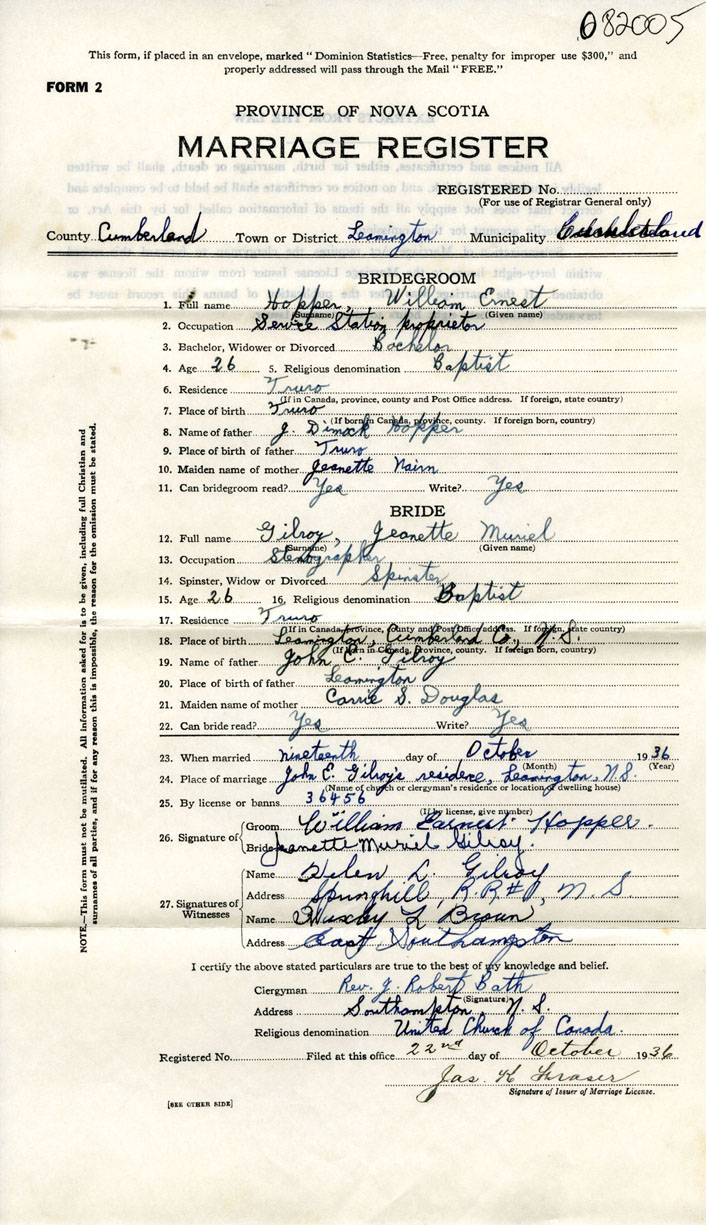 082005
This form, if placed in an envelope, marked "Dominion Statistics—Free, penalty for improper use $300," and
properly addressed will pass through the Mail "FREE."
FORM 2
PROVINCE OF NOVA SCOTIA
MARRIAGE REGISTER
REGISTERED No.
(For use of Registrar General only)
County Cumberland Town or District Leamington Municipality
BRIDEGROOM
1. Full name Hopper, William Ernest
(Surname) (Given name)
2. Occupation Service Station proprietor
3. Bachelor, Widower or Divorced Bachelor
4. Age 26 5. Religious denomination Baptist
6. Residence Truro
(If in Canada, province, county and Post Office address. If foreign, state country)
7. Place of birth Truro
(If born in Canada, province, county. If foreign born, country)
8. Name of father J. Dimock Hopper
9. Place of birth of father Truro
10. Maiden name of mother Jeanette Nairn
11. Can bridegroom read? Yes Write? Yes
BRIDE
12. Full name Gilroy, Jeanette Muriel
(Surname) (Given name)
13. Occupation Stenographer
14. Spinster, Widow or Divorced Spinster
15. Age 26 16. Religious denomination Baptist
17. Residence Truro
(If in Canada, province, County and Post Office address. If foreign, state country)
18. Place of birth Leamington, Cumberland Co., N.S.
(If born in Canada, province, county. If foreign born, country)
19. Name of father John E. Gilroy
20. Place of birth of father Leamington
21. Maiden name of mother Carrie S. Douglas
22. Can bride read? Yes Write? Yes
23. When married nineteenth day of October 1936
(Month) (Year)
24. Place of marriage John E. Gilroy's residence, Leamington, N.S.
(Name of church or clergyman's residence or location of dwelling house)
25. By license or banns 36456
(If by license, give number)
26. Signature of Groom William Earnest Hopper.
Bride Jeanette Muriel Gilroy.
27. Signatures of Witnesses
Name Helen L. Gilroy
Address Springhill, R.R#1, N.S
Name L Brown
Address East Southampton
I certify the above stated particulars are true to the best of my knowledge and belief.
Clergyman Rev. J. Robert Bath
(Signature)
Address Southampton, N.S.
Religious denomination United Church of Canada.
Registered No. Filed at this office 22nd day of October 1936
Jas. K Fraser
Signature of Issuer of Marriage License.
[SEE OTHER SIDE]
NOTE.—This form must not be mutilated. All information asked for is to be given, including full Christian and
surnames of all parties, and if for any reason this is impossible, the reason for the omission must be stated.